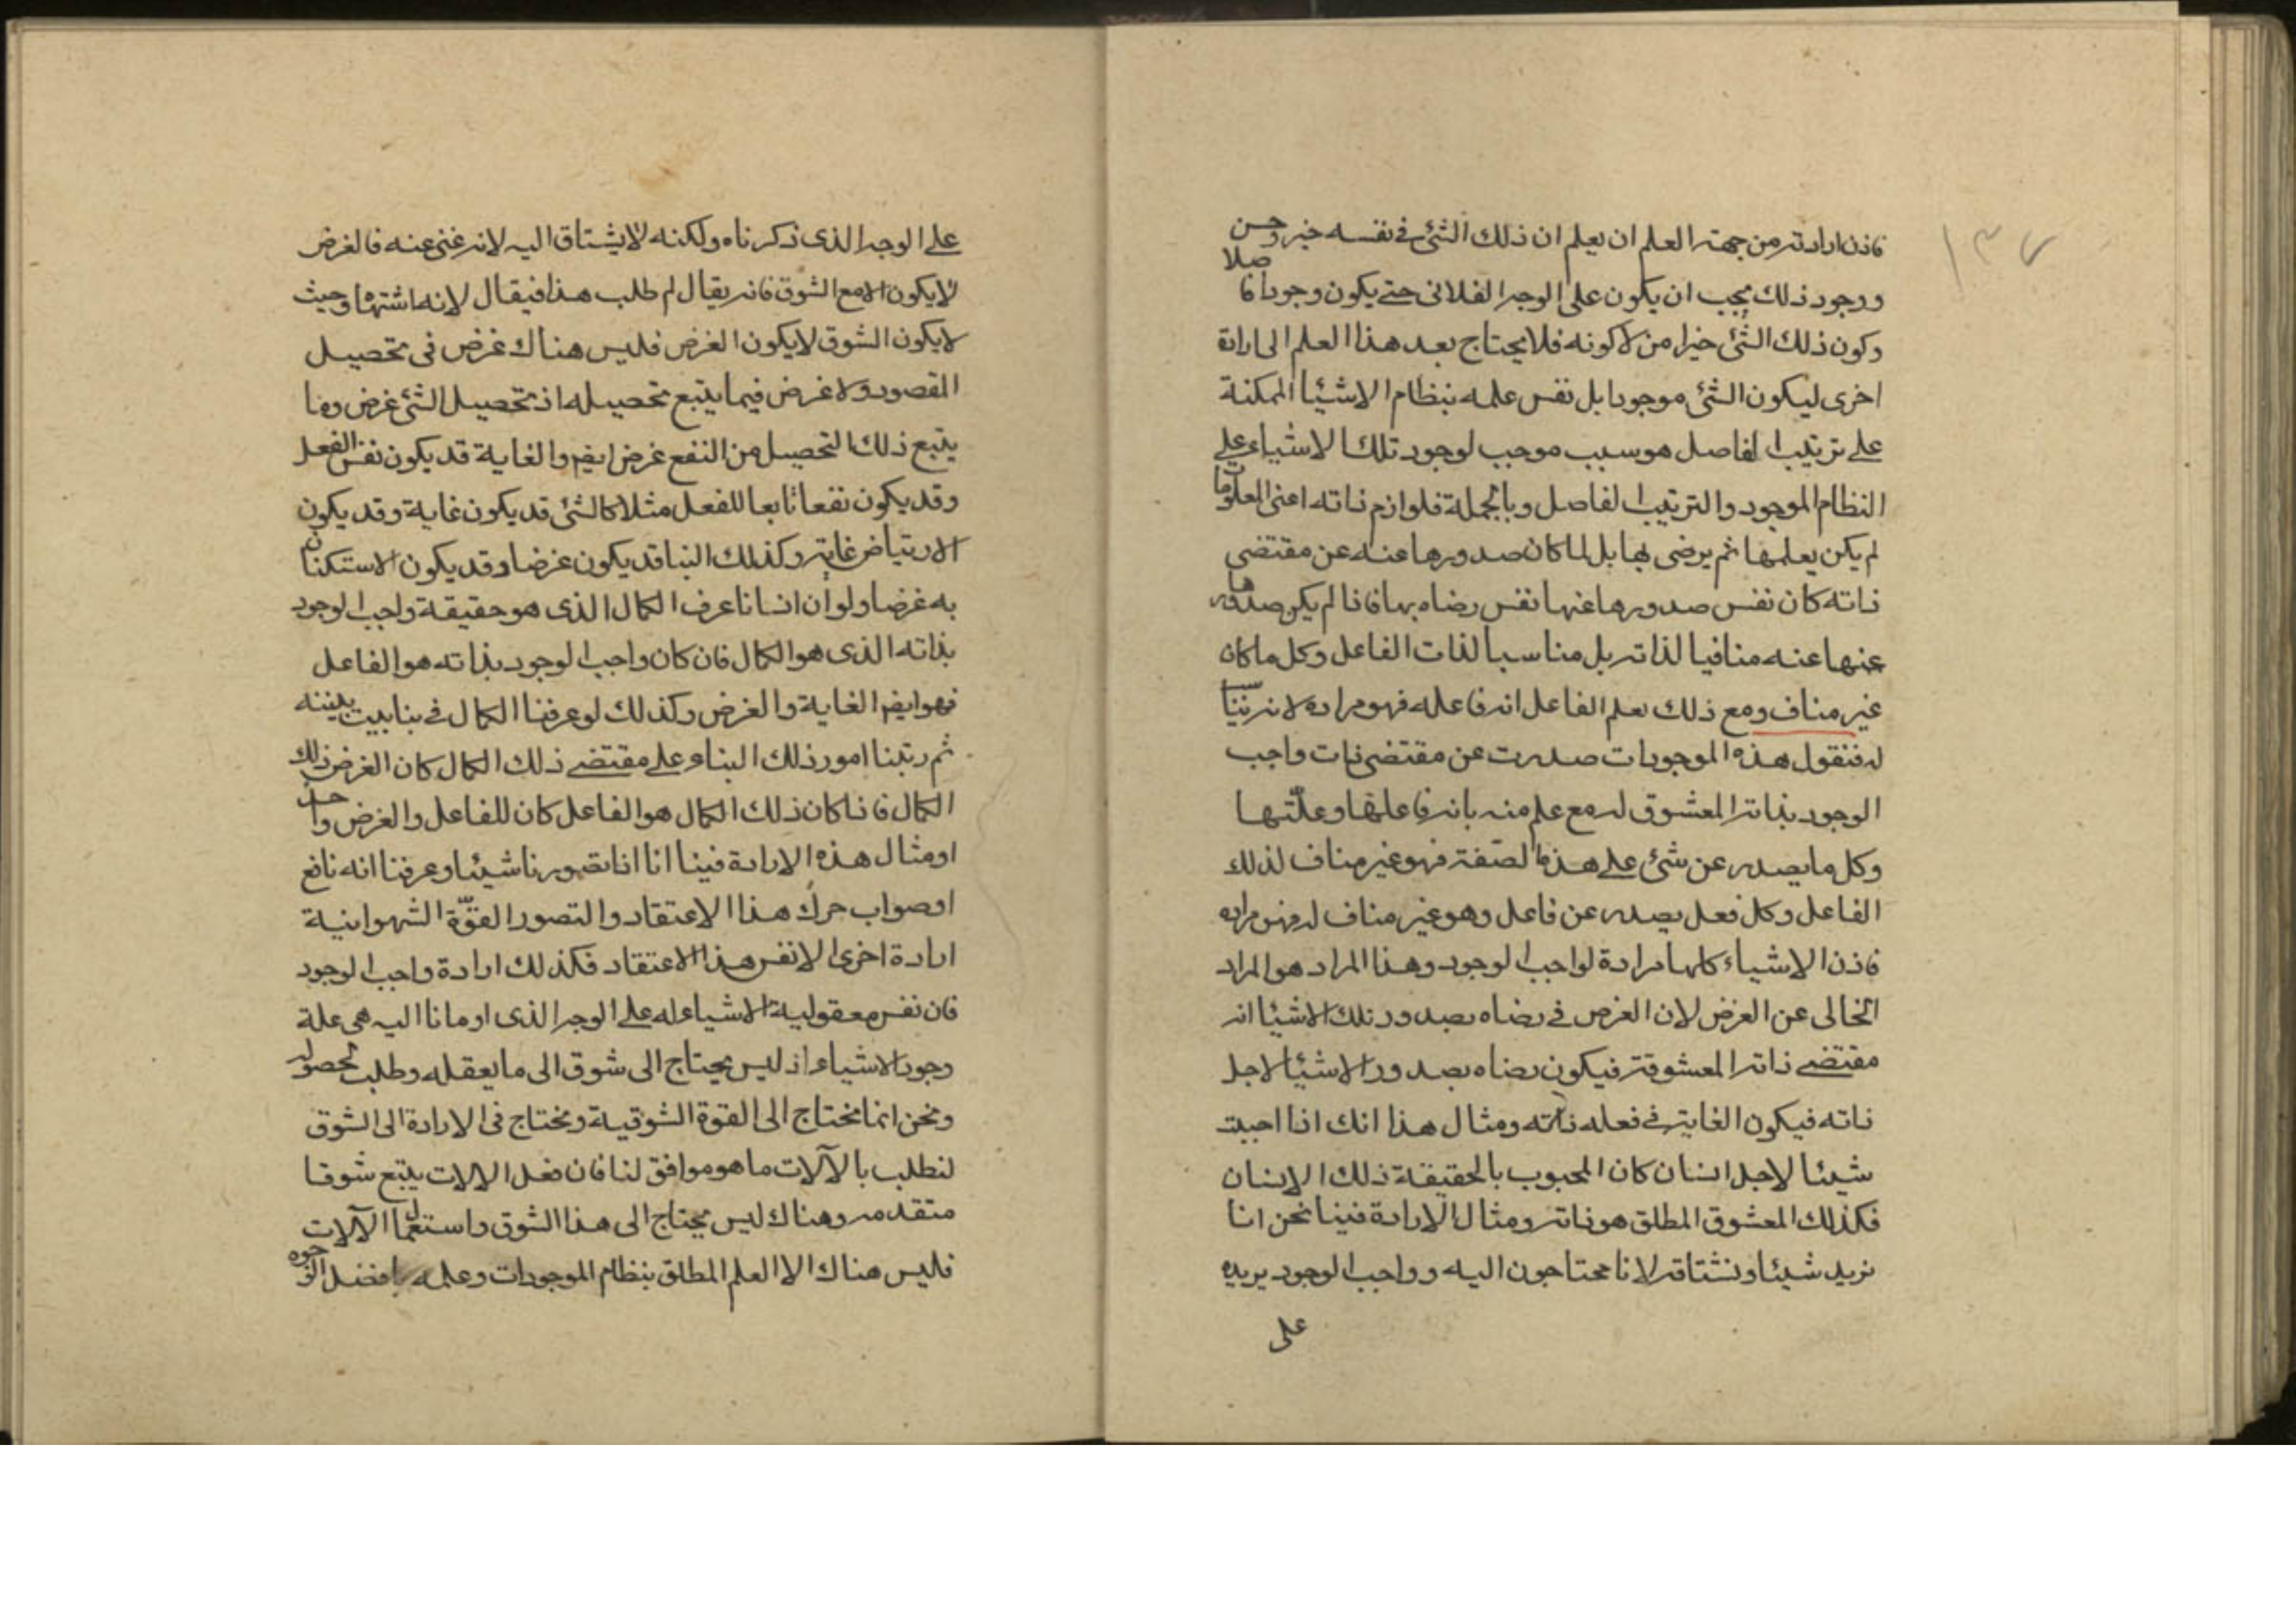 ١٣٧
فاذن ارادته من جهة العلم ان يعلم ان ذلك الشئ في نفسه خير وحسن
ووجود ذلك يجب ان يكون على الوجه الفلانى حتى يكون وجودا فاضلا
وكون ذلك الشئ خيرا من لا كونه فلا يحتاج بعد هذا العلم الى ارادة
اخرى ليكون الشئ موجودا بل نفس علمه بنظام الاشيا الممكنة
على ترتيب الفاصل هو سبب موجب لوجود تلك الاشياء على
النظام الموجود والترتيب الفاصل وبالجملة فلوازم ذاته اعنى المعلومات
لم يكن يعلمها ثم يرضى بها بل لما كان صدورها عنه عن مقتضى
ذاته كان نفس صدورها عنها نفس رضاه بها فاذا لم يكن صدورها
عنها عنه منافيا لذاته بل مناسبا لذات الفاعل وكل ما كان
غير مناف ومع ذلك يعلم الفاعل انه فاعله فهو مراده لانه
له فنقول هذه الموجودات صدرت عن مقتضى ذات واجب
الوجود بذاته المعشوق له مع علم منه بانه فاعلها وعلّتها
وكل ما يصدر عن شئ على هذه الصّفة فهو غير مناف لذلك
الفاعل وكل فعل يصدر عن فاعل وهو غير مناف له فهو مراده
فاذن الاشياء كلها مرادة لواجب الوجود وهذا المراد هو المراد
الخالى عن الغرض لان الغرض في رضاه بصدور تلك الاشيا انه
مقتضى ذاته المعشوقة فيكون رضاه بصدور الاشيا لاجل
ذاته فيكون الغاية في فعله ذاته ومثال هذا انك اذا احببت
شيئا لاجل انسان كان المحبوب بالحقيقة ذلك الانسان
فكذلك المعشوق المطلق هو ذاته ومثال الارادة فينا نحن انا
نريد شيئا ونشتاقه لانا محتاجون اليه وواجب الوجود يريده
على
على الوجه الذى ذكرناه ولكنه لا يشتاق اليه لانه غنى عنه فالغرض
لا يكون الا مع الشوق فانه يقال لم طلب هذا فيقال لانه اشتهاه وحيث
لا يكون الشوق لا يكون الغرض فليس هناك غرض فى تحصيل
المقصود ولا غرض فيما يتبع تحصيله اذ تحصيل الشئ غرض وما
يتبع ذلك التحصيل من النفع غرض ايضا والغاية قد يكون نفس الفعل
وقد يكون نفعا تابعا للفعل مثلا كالشئ قد يكون غاية وقد يكون
الارتياض غاية وكذلك البنا قد يكون غرضا وقد يكون الاستكنان
به غرضا ولو ان انسانا عرف الكمال الذى هو حقيقة واجب الوجود
بذاته الذى هو الكمال فان كان واجب الوجود بذاته هو الفاعل
فهو ايضا الغاية والغرض وكذلك لو عرفنا الكمال في بنا بيت
ثم رتبنا امور ذلك البناء على مقتضى ذلك الكمال كان الغرض ذلك
الكمال فاذا كان ذلك الكمال هو الفاعل كان للفاعل والغرض واحدا
او مثال هذه الارادة فينا انا اذا تصورنا شيئا وعرفنا انه نافع
او صواب حرك هذا الاعتقاد والتصور القوّة الشهوانية
ارادة اخرى الا نفس هذا الاعتقاد فكذلك ارادة واجب الوجود
فان نفس معقولية الاشياء له على الوجه الذى اومانا اليه هى علة
وجود الاشياء اذ ليس يحتاج الى شوق الى ما يعقله وطلب لحصوله
ونحن انما نحتاج الى القوة الشوقية ونحتاج فى الارادة الى الشوق
لنطلب بالآلات ما هو موافق لنا فان فعل الالات يتبع شوقا
متقدمه وهناك ليس يحتاج الى هذا الشوق واستعمال الآلات
فليس هناك الا العلم المطلق بنظام الموجودات وعلمه بافضل الوجوه